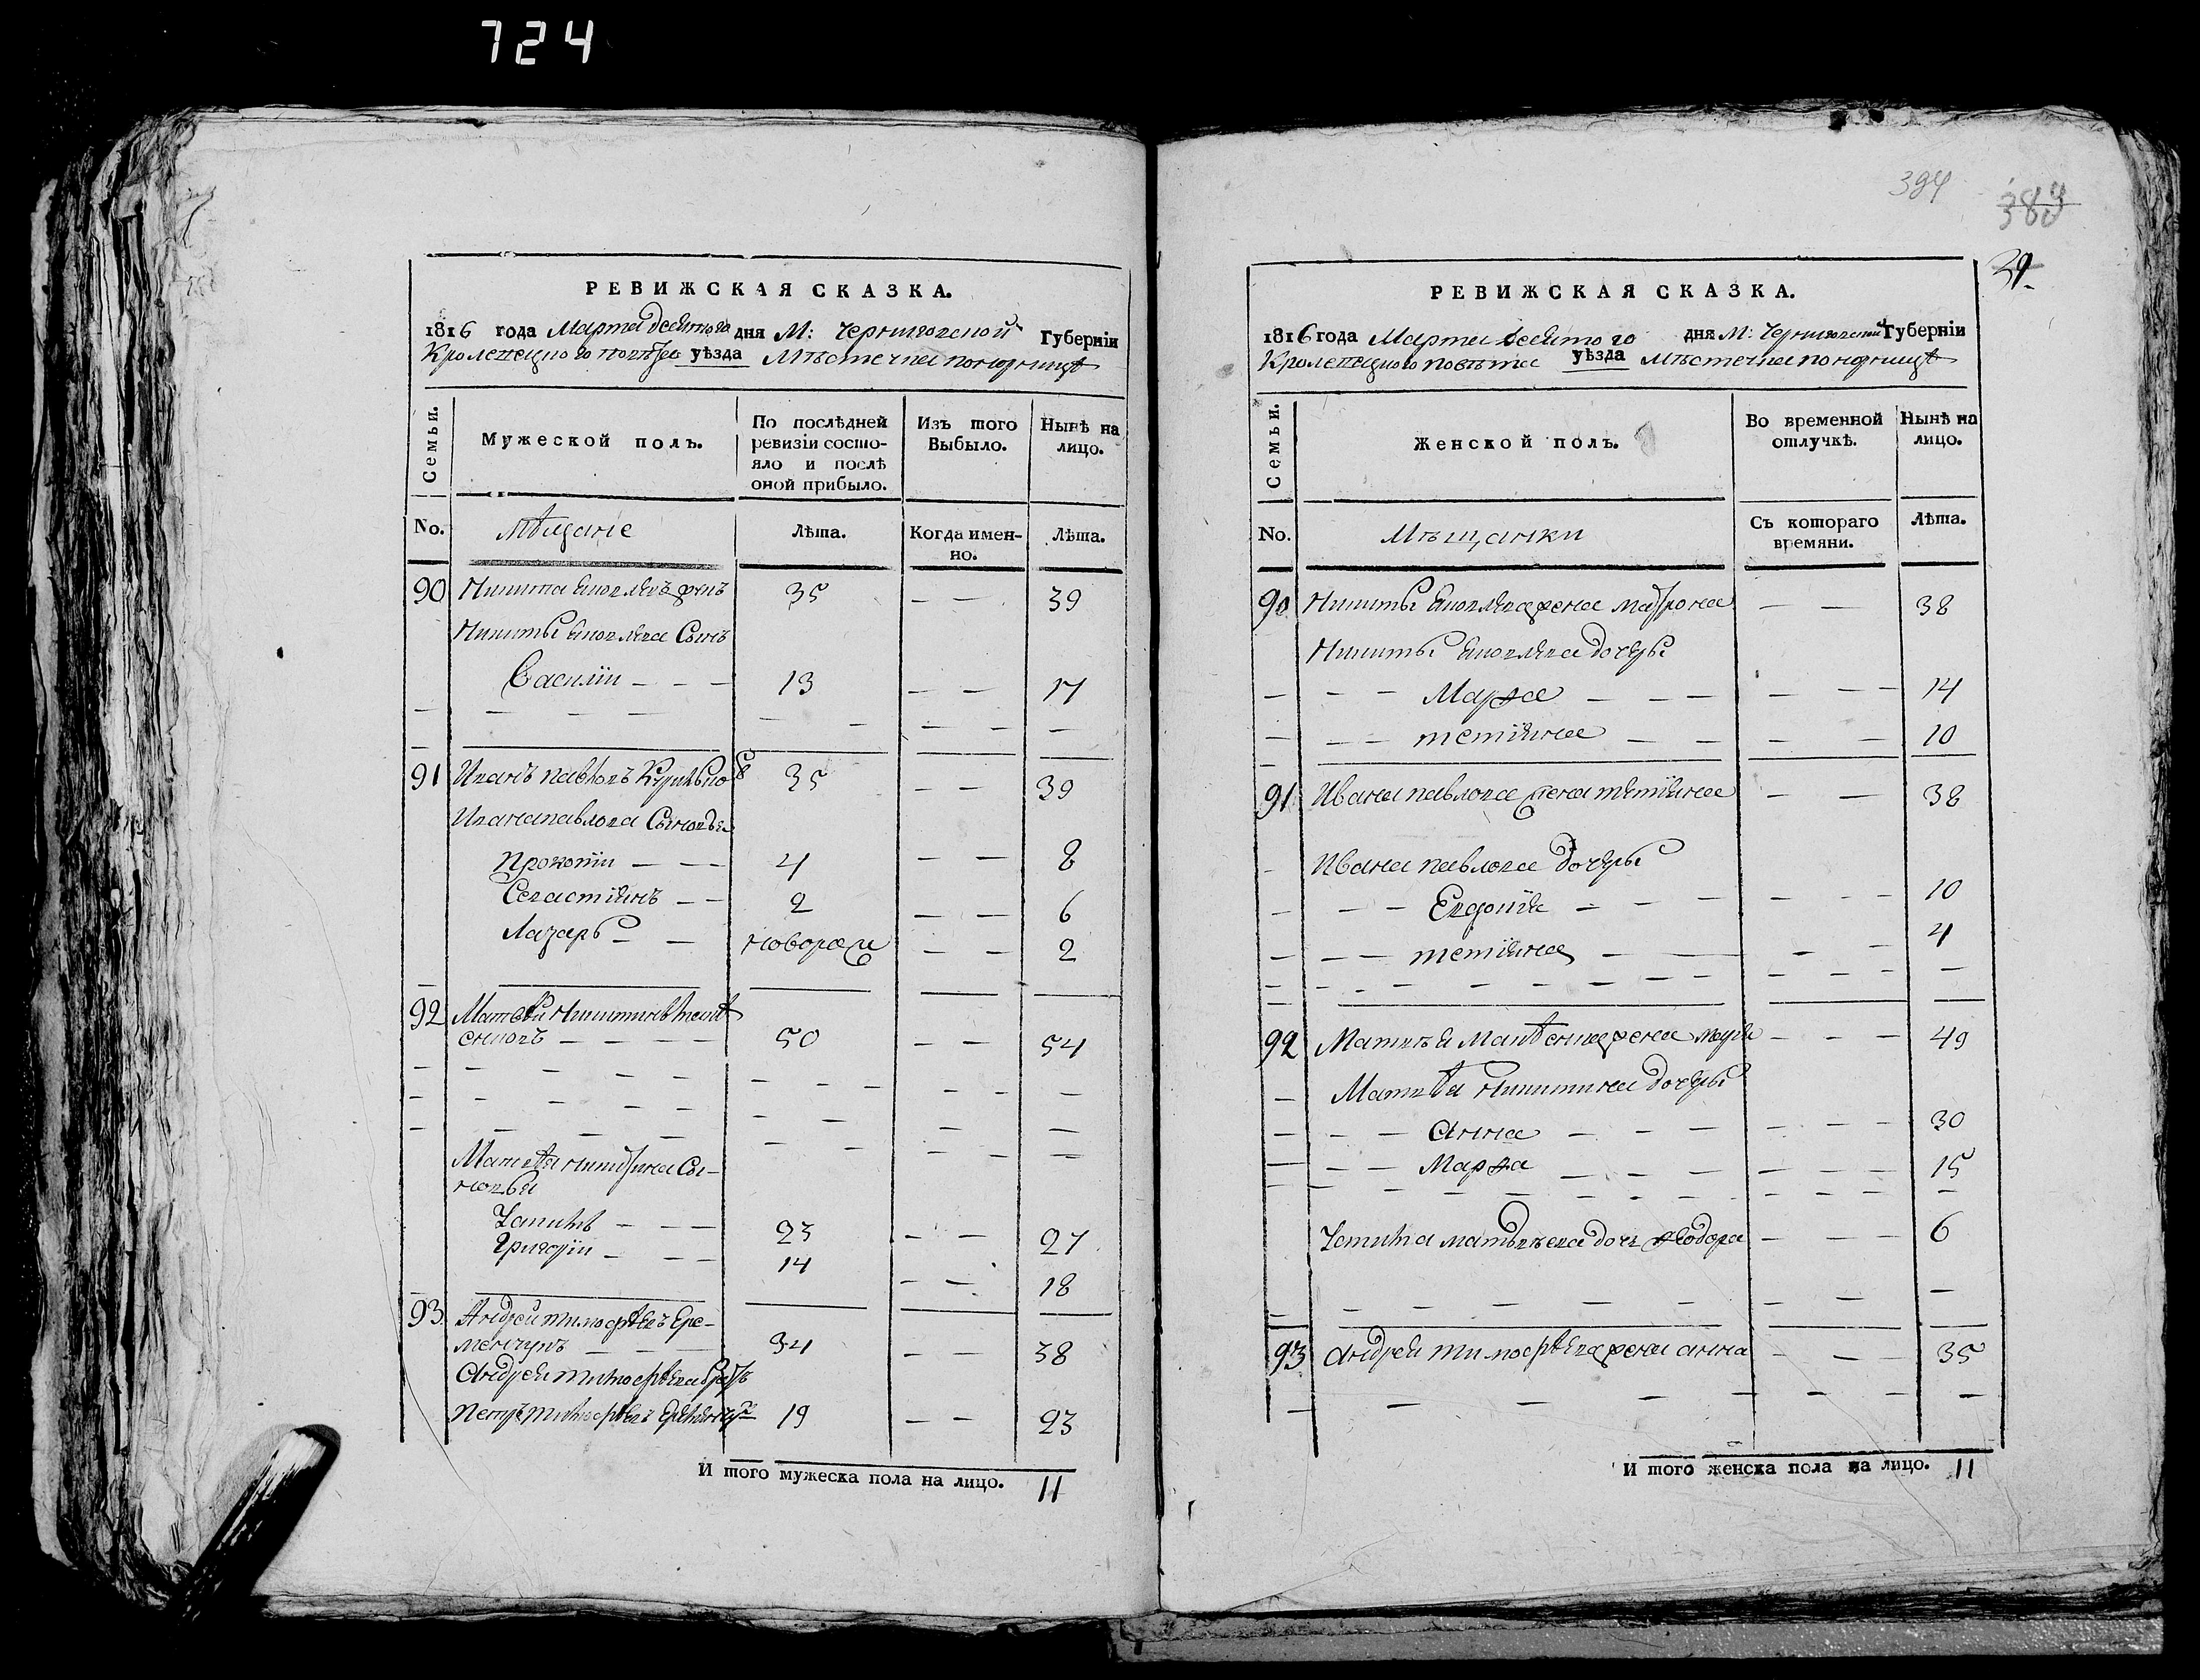 724
РЕВИЖСКАЯ СКАЗКА.
1816 года Марта десятого дня М: Черниговской Губерніи
Кролевецкого повѣта уѣзда Мѣстечка Понорницѣ
Семьи.
Мужеской полъ.
По послѣдней ревизіи состо-
яло и послѣ оной прибыло.
Изъ того Выбыло.
Нынѣ на лицо.
No. мѣщане Лѣта. Когда имен-
но. Лѣта.
90 Никита 35 — — 39
Никиты Сынъ
Василіи — — — 13 — — 17
91 Иванъ Павловъ 35 — — 39
Ивана павлова Сыновья
Прокопіи — — — 4 — — 8
Севастіянъ — — 2 — — 6
Лазарь — — новорож — — 2
92 Матвѣи Никитинъ
— — — — 50 — — 54
Матвѣя никитина Сы-
новья
23 — — 27
Григоріи — — — 14 — — 18
93 Андреи тимофѣевъ Ере-
менчукъ — — — 34 — — 38
Андрея тимофѣева братъ
Петръ тимофѣевъ 19 — — 23
И того мужеска пола на лицо. 11
394
389
29.
РЕВИЖСКАЯ СКАЗКА.
1816 года Марта десятого дня М: Черниговской Губерніи
Кролевецкого повѣта уѣзда мѣстечка понорницѣ
Семьи.
Женской полъ.
Во временной отлучкѣ.
Нынѣ на лицо.
No. Мѣщанки Съ котораго
времяни. Лѣта.
90 Никиты жена матрона — — 38
Никиты дочеры
— — — Марѳа — — — — — — 14
— — — тетіяна — — — — 10
91 Ивана павлова жена тетіяна — — 38
Ивана павлова дочеры
— — — Евдокія — — — — — — 10
— — — тетіяна — — — — 4
92 Матвѣя жена — — — 49
Матвѣя никитина дочеры
— — — анна — — — — — — 30
— — — Марѳа — — — — — — — 15
матвѣева дочь ѳеодора — — — 6
93 андрея тимофѣева жена анна — — — 35
И того женска пола на лицо. 11